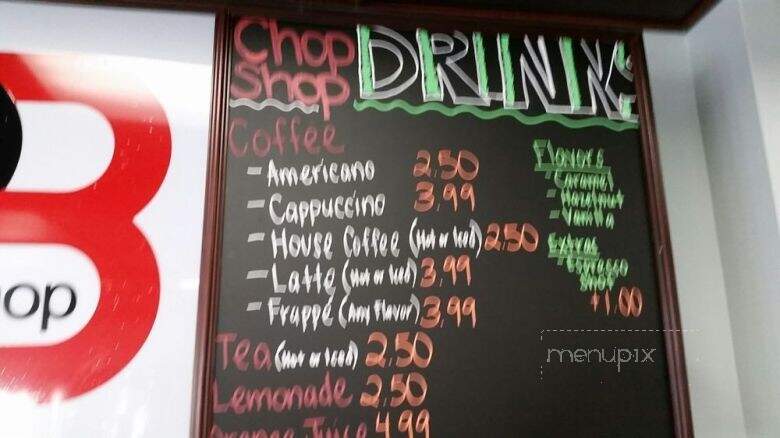 Chop Shop DRINKS
Coffee
- Americano 2.50
- Cappuccino 3.99
- House Coffee (Hot or Iced) 2.50
- Latte (Hot or Iced) 3.99
- Frappé (Any Flavor) 3.99
Tea (Hot or Iced) 2.50
Lemonade 2.50
Orange Juice 4.99
Flavors
- Caramel
- Hazelnut
- Vanilla
Extras
- Espresso
Shot
+1.00
op
menupix